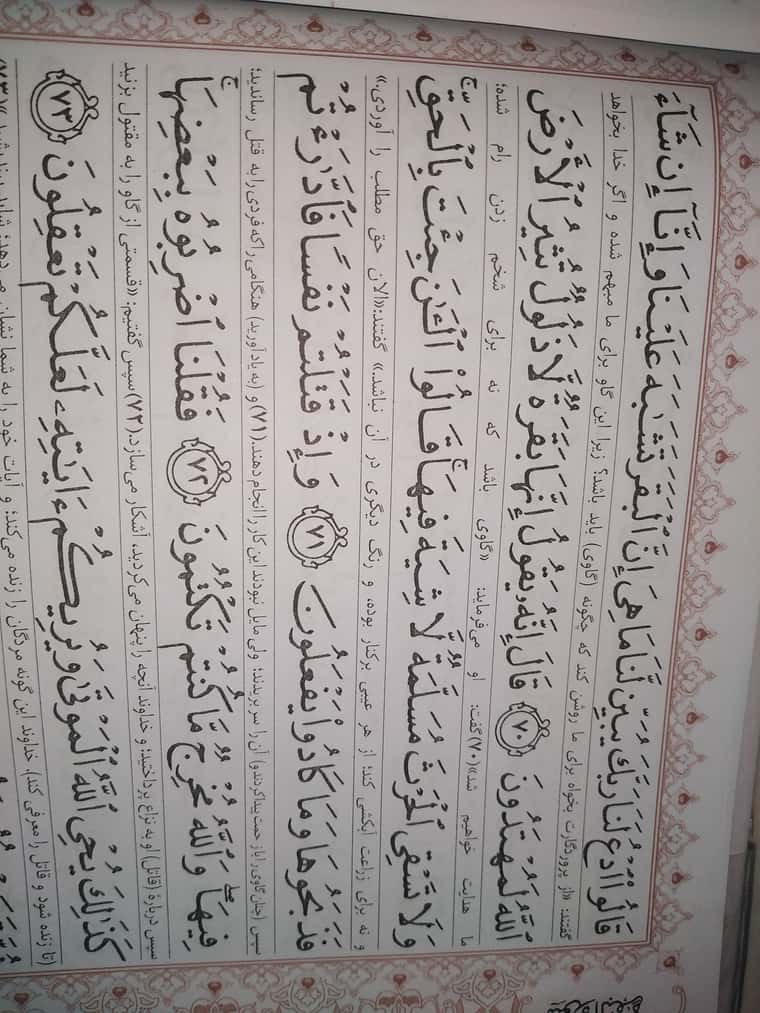 قَالُوا۟ ٱدْعُ لَنَا رَبَّكَ يُبَيِّن لَّنَا مَا هِىَ إِنَّ ٱلْبَقَرَ تَشَـٰبَهَ عَلَيْنَا وَإِنَّآ إِن شَآءَ
گفتند: «از پروردگارت بخواه برای ما روشن کند که چگونه (گاوی) باید باشد؟ زیرا این گاو برای ما مبهم شده و اگر خدا بخواهد
ٱللَّهُ لَمُهْتَدُونَ ٧٠ قَالَ إِنَّهُۥ يَقُولُ إِنَّهَا بَقَرَةٌ لَّا ذَلُولٌ تُثِيرُ ٱلْأَرْضَ
ما هدایت خواهیم شد.»(۷۰) گفت: او می‌فرماید: «گاوی باشد که نه برای شخم زدن رام شده؛
وَلَا تَسْقِى ٱلْحَرْثَ مُسَلَّمَةٌ لَّا شِيَةَ فِيهَا ۚ قَالُوا۟ ٱلْـَٔـٰنَ جِئْتَ بِٱلْحَقِّ ۚ
و نه برای زراعت آبکشی کند؛ از هر عیبی برکنار بوده، و رنگ دیگری در آن نباشد.» گفتند: «الان حق مطلب را آوردی.»
فَذَبَحُوهَا وَمَا كَادُوا۟ يَفْعَلُونَ ٧١ وَإِذْ قَتَلْتُمْ نَفْسًا فَٱدَّٰرَْٰٔتُمْ
سپس (چنان گاوی را با زحمت پیدا کردند و) آن را سر بریدند؛ ولی مایل نبودند این کار را انجام دهند.(۷۱) و (به یاد آورید) هنگامی را که فردی را به قتل رساندید؛
فِيهَا ۖ وَٱللَّهُ مُخْرِجٌ مَّا كُنتُمْ تَكْتُمُونَ ٧٢ فَقُلْنَا ٱضْرِبُوهُ بِبَعْضِهَا ۚ
سپس دربارهٔ (قاتل) او به نزاع پرداختید؛ و خداوند آنچه را پنهان می‌کردید، آشکار می‌سازد.(۷۲) سپس گفتیم: «قسمتی از گاو را به مقتول بزنید
كَذَٰلِكَ يُحْىِ ٱللَّهُ ٱلْمَوْتَىٰ وَيُرِيكُمْ ءَايَـٰتِهِۦ لَعَلَّكُمْ تَعْقِلُونَ ٧٣
(تا زنده شود و قاتل را معرفی کند). خداوند این گونه مردگان را زنده می‌کند؛ و آیات خود را به شما نشان می‌دهد؛ شاید